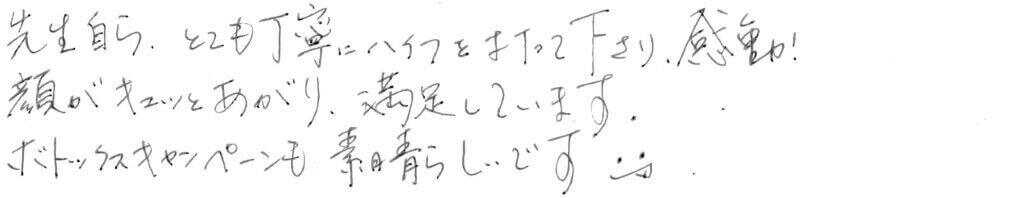 先生自ら、とても丁寧にハイフをまたって下さり、感動!
顔がキュッとあがり、満足しています.
ボトックスキャンペーンも素晴らしいです